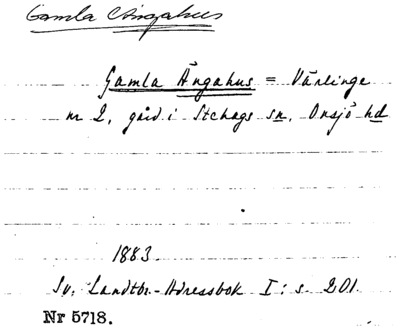 Gamla Ängahus
Gamla Ängahus = Värlinge
nr 2, gård i Stehags sn, Onsjö hd
1883
Sv. Landtbr.-Adressbok I: s 201
Nr 5718.